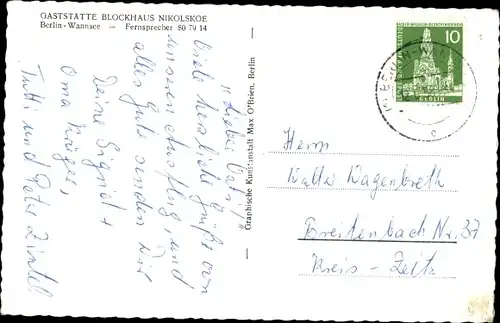 GASTSTÄTTE BLOCKHAUS NIKOLSKOE
Berlin-Wannsee — Fernsprecher 80 79 14
"Lieber Vati!
Viele herzliche Grüße von
unserem Ausflug, und
alles Gute senden Dir
Deine Sigrid +
Oma Krüger,
Tutti und Peter
Graphische Kunstanstalt Max O'Brien, Berlin
10
DEUTSCHE BUNDESPOST
BERLIN
Herrn
Walter Wagenbreth
Breitenbach Nr. 37
Kreis - Zeitz